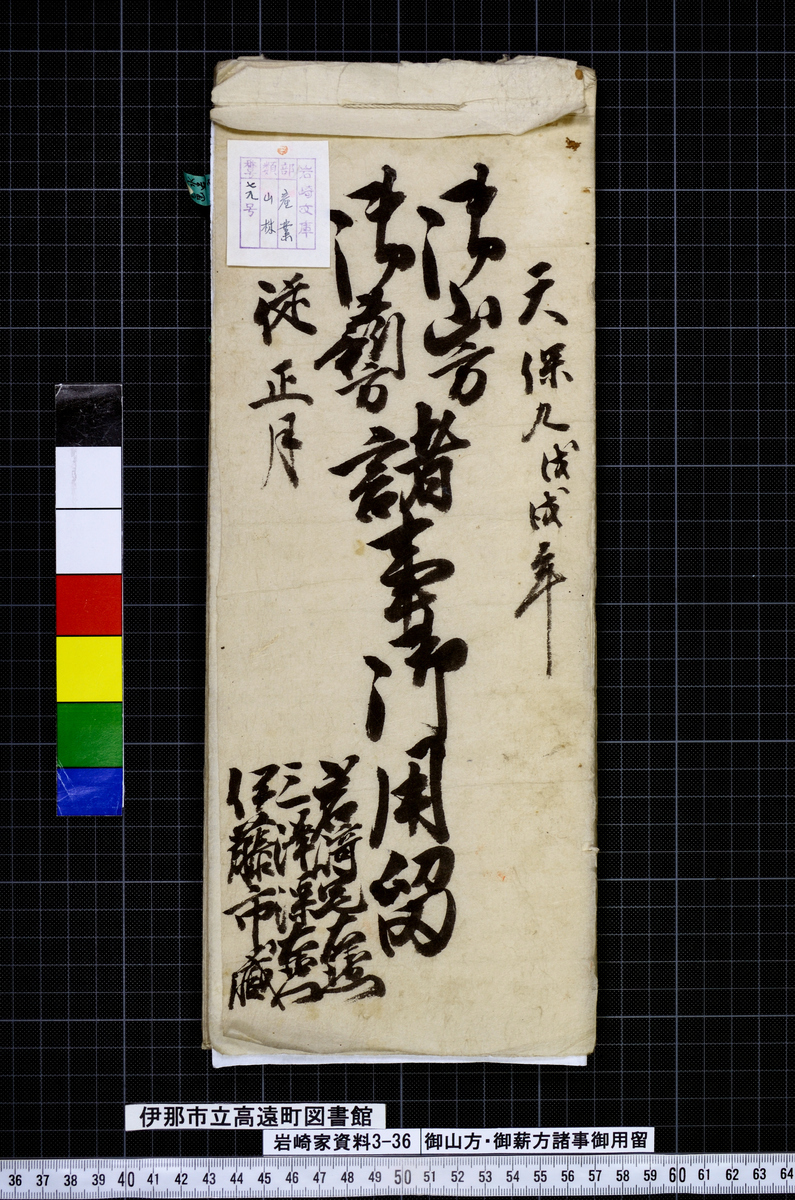 天保九戊戌年
御山方
御薪方
諸事御用留
従正月
岩崎
三澤
伊藤市蔵
岩崎文庫
部 産業
類 山林
七九号
伊那市立高遠町図書館
岩崎家資料3-36 御山方・御薪方諸事御用留
36 37 38 39 40 41 42 43 44 45 46 47 48 49 50 51 52 53 54 55 56 57 58 59 60 61 62 63 64